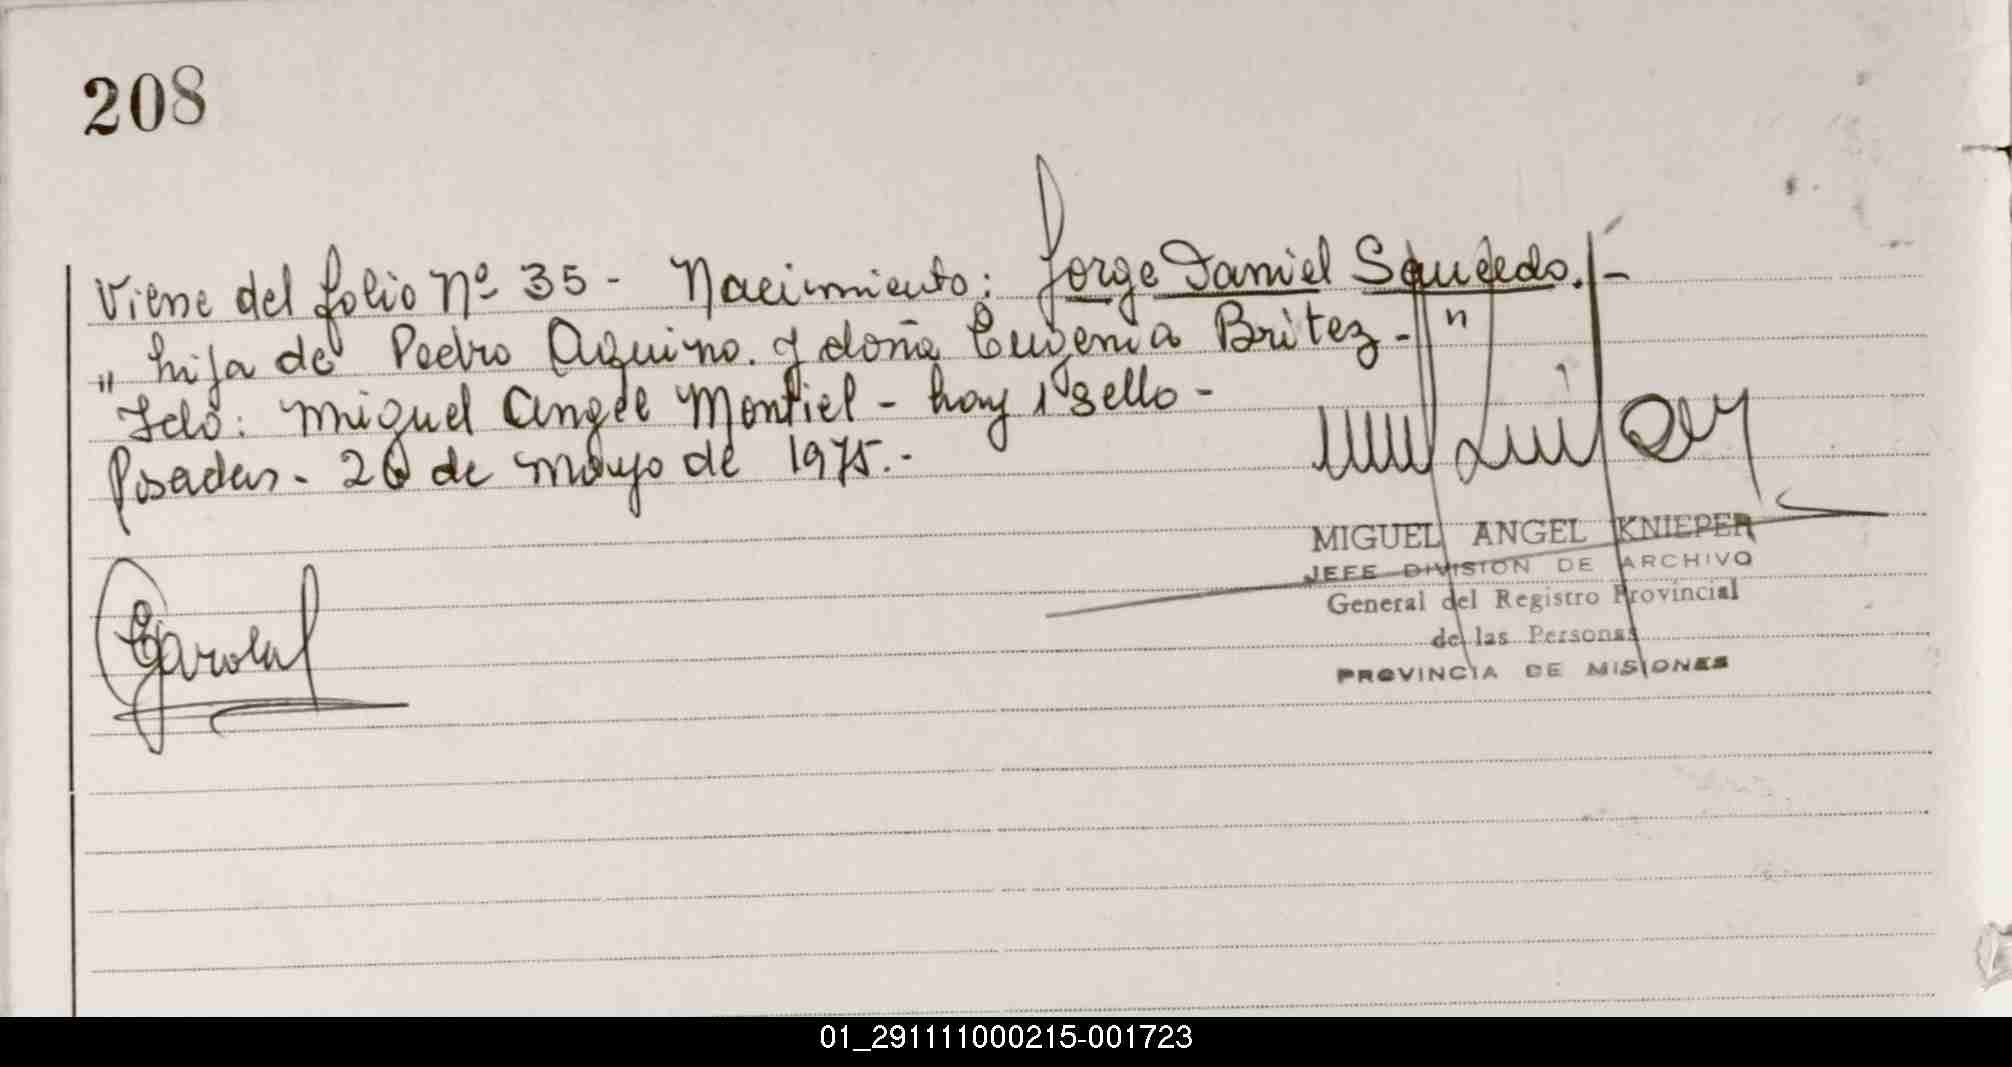 208
Viene del folio Nº 35 - Nacimiento: Jorge Daniel Saucedo.-
" hija de Pedro Aquino y doña Eugenia Britez - "
Fdo: Miguel Angel Montiel - hay 1 sello -
Posadas - 26 de mayo de 1975.-
MIGUEL ANGEL KNIEPER
JEFE DIVISION DE ARCHIVO
General del Registro Provincial
de las Personas
PROVINCIA DE MISIONES
01_291111000215-001723